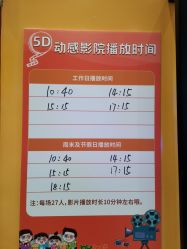 5D 动感影院播放时间
工作日播放时间
10:40 14:15
15:15 17:15
周末及节假日播放时间
10:40 14:15
15:15 17:15
18:15
注：每场27人，影片播放时长10分钟左右哦。